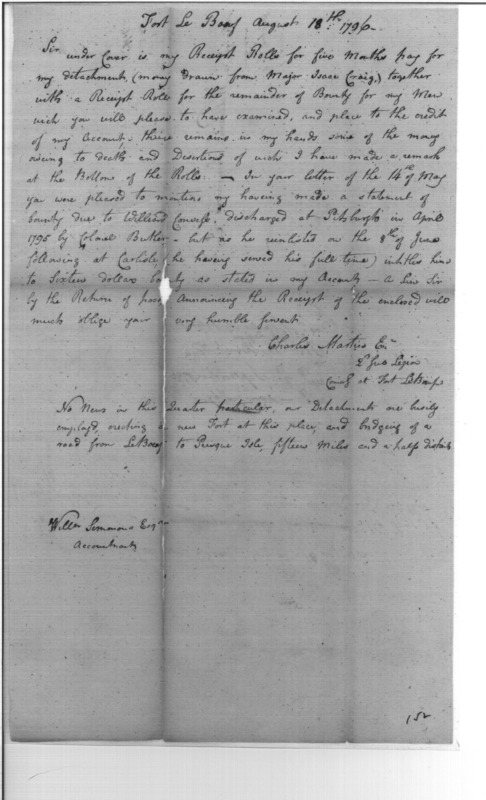 Fort Le Boeuf August 18th 1796
Sir
under Cover is my Receipt Rolls for five Months pay for
my detachment, (money drawn from Major Isaac Craig,) together
with a Receipt Role for the remainder of Bounty for my Men
wich you will please to have examined, and place to the credit
of my Account, there remains in my hands some of the money
owing to deaths and Desertions of wich I have made a remark
at the Bottom of the Rolls. — In your letter of the 14th of May
you were pleased to mention my having made a statement of
bounty due to William discharged at Pitsburgh in April
1795 by Colonel Butler — but as he reenlisted on the 8th of June
following at Carlisle (he having served his full time) intitles him
to Sixteen dollars bounty as stated in my Account — a Line Sir
by the Return of post Announcing the Receipt of the enclosed will
much oblige your very humble servent
Charles Martin En
2d Sub Legion
Comg at Fort LeBoeuf
No News in this Quarter particular, our Detachments are busily
employd, erecting a new Fort at this place, and bridging of a
road from LeBoeuf to Presque Isle, fifteen Miles and a half distant
Willm Simmons Esqr
Accountant
152